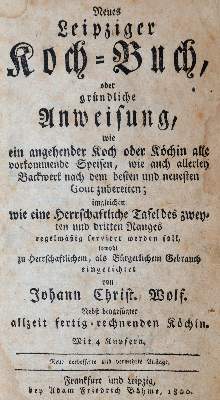 Neues
Leipziger
Koch-Buch,
oder
gründliche
Anweisung,
wie
ein angehender Koch oder Köchin alle
vorkommende Speisen, wie auch allerley
Backwerk nach dem besten und neuesten
Gout zubereiten;
imgleichen
wie eine Herrschaftliche Tafel des zwey-
ten und dritten Ranges
regelmäßig serviert werden soll,
sowohl
zu Herrschaftlichem, als Bürgerlichem Gebrauch
eingerichtet
von
Johann Christ. Wolf.
Nebst beygefügter
allzeit fertig-rechnenden Köchin.
Mit 4 Kupfern.
Neue verbesserte und vermehrte Auflage.
Frankfurt und Leipzig,
bey Adam Friedrich Böhme, 1800.